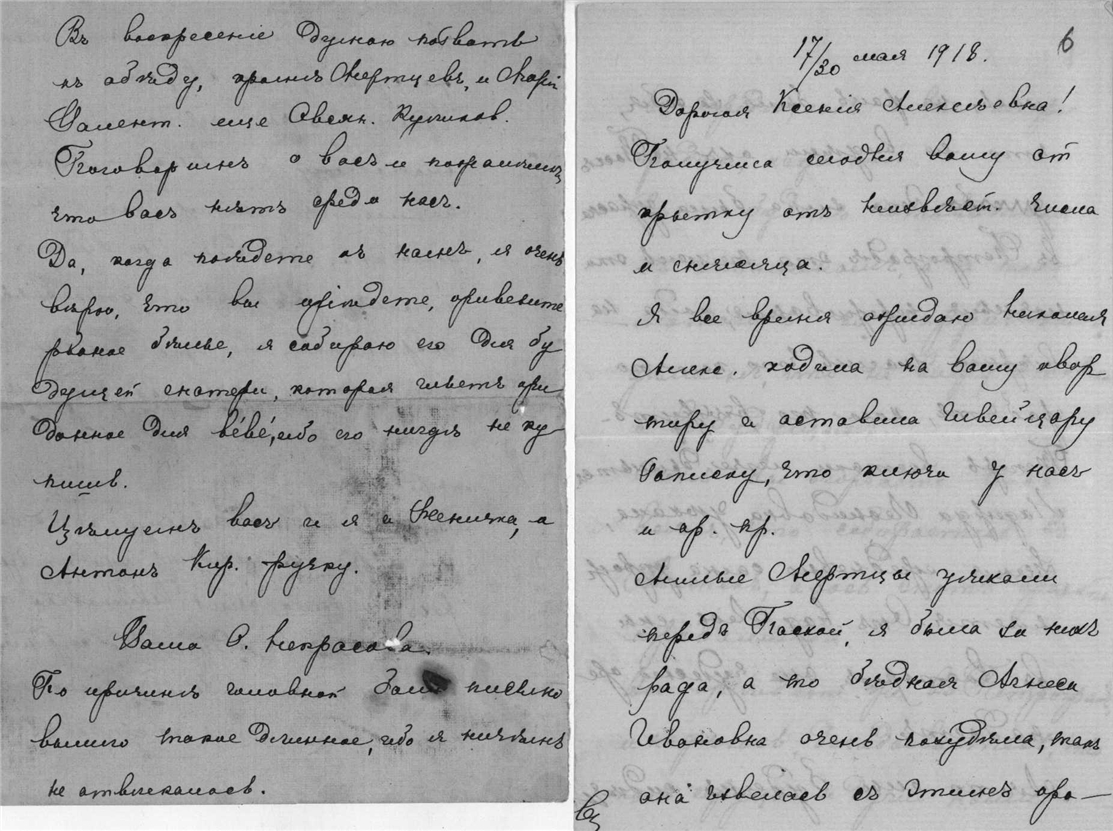 Въ воскресеніе думаю позвать
къ обѣду, кромѣ Мертцевъ, и Марій
Валент. еще Овсян. Куликов.
Поговоримъ о васъ и
что васъ нѣтъ среди насъ.
Да, когда поѣдете къ намъ, я очень
вѣрю, что вы пріѣдете, привезите
рваное бѣлье, я собираю его для бу
дущей матери, которая шьетъ при
данное для bébé, ибо его нигдѣ не ку
пишь.
Цѣлуемъ васъ и я и Женичка, а
Антонъ Кир. ручку.
Ваша О. Некрасова.
По причинѣ головной боли письмо
вышло такое длинное, ибо я ничѣмъ
не отвлекалась.
6
17/30 мая 1918.
Дорогая Ксенія Алексѣевна!
Получила сегодня вашу от
крытку отъ неизвѣст. числа
и мѣсяца.
Я все время ожидаю Николая
Алекс. ходила на вашу квар
тиру и оставила швейцару
записку, что ключи у насъ
и пр. пр.
Милые Мертцы уѣхали
передъ Пасхой, я была за нихъ
рада, а то бѣдная Агнеса
Ивановна очень похудѣла, такъ
она извелась съ этимъ про—